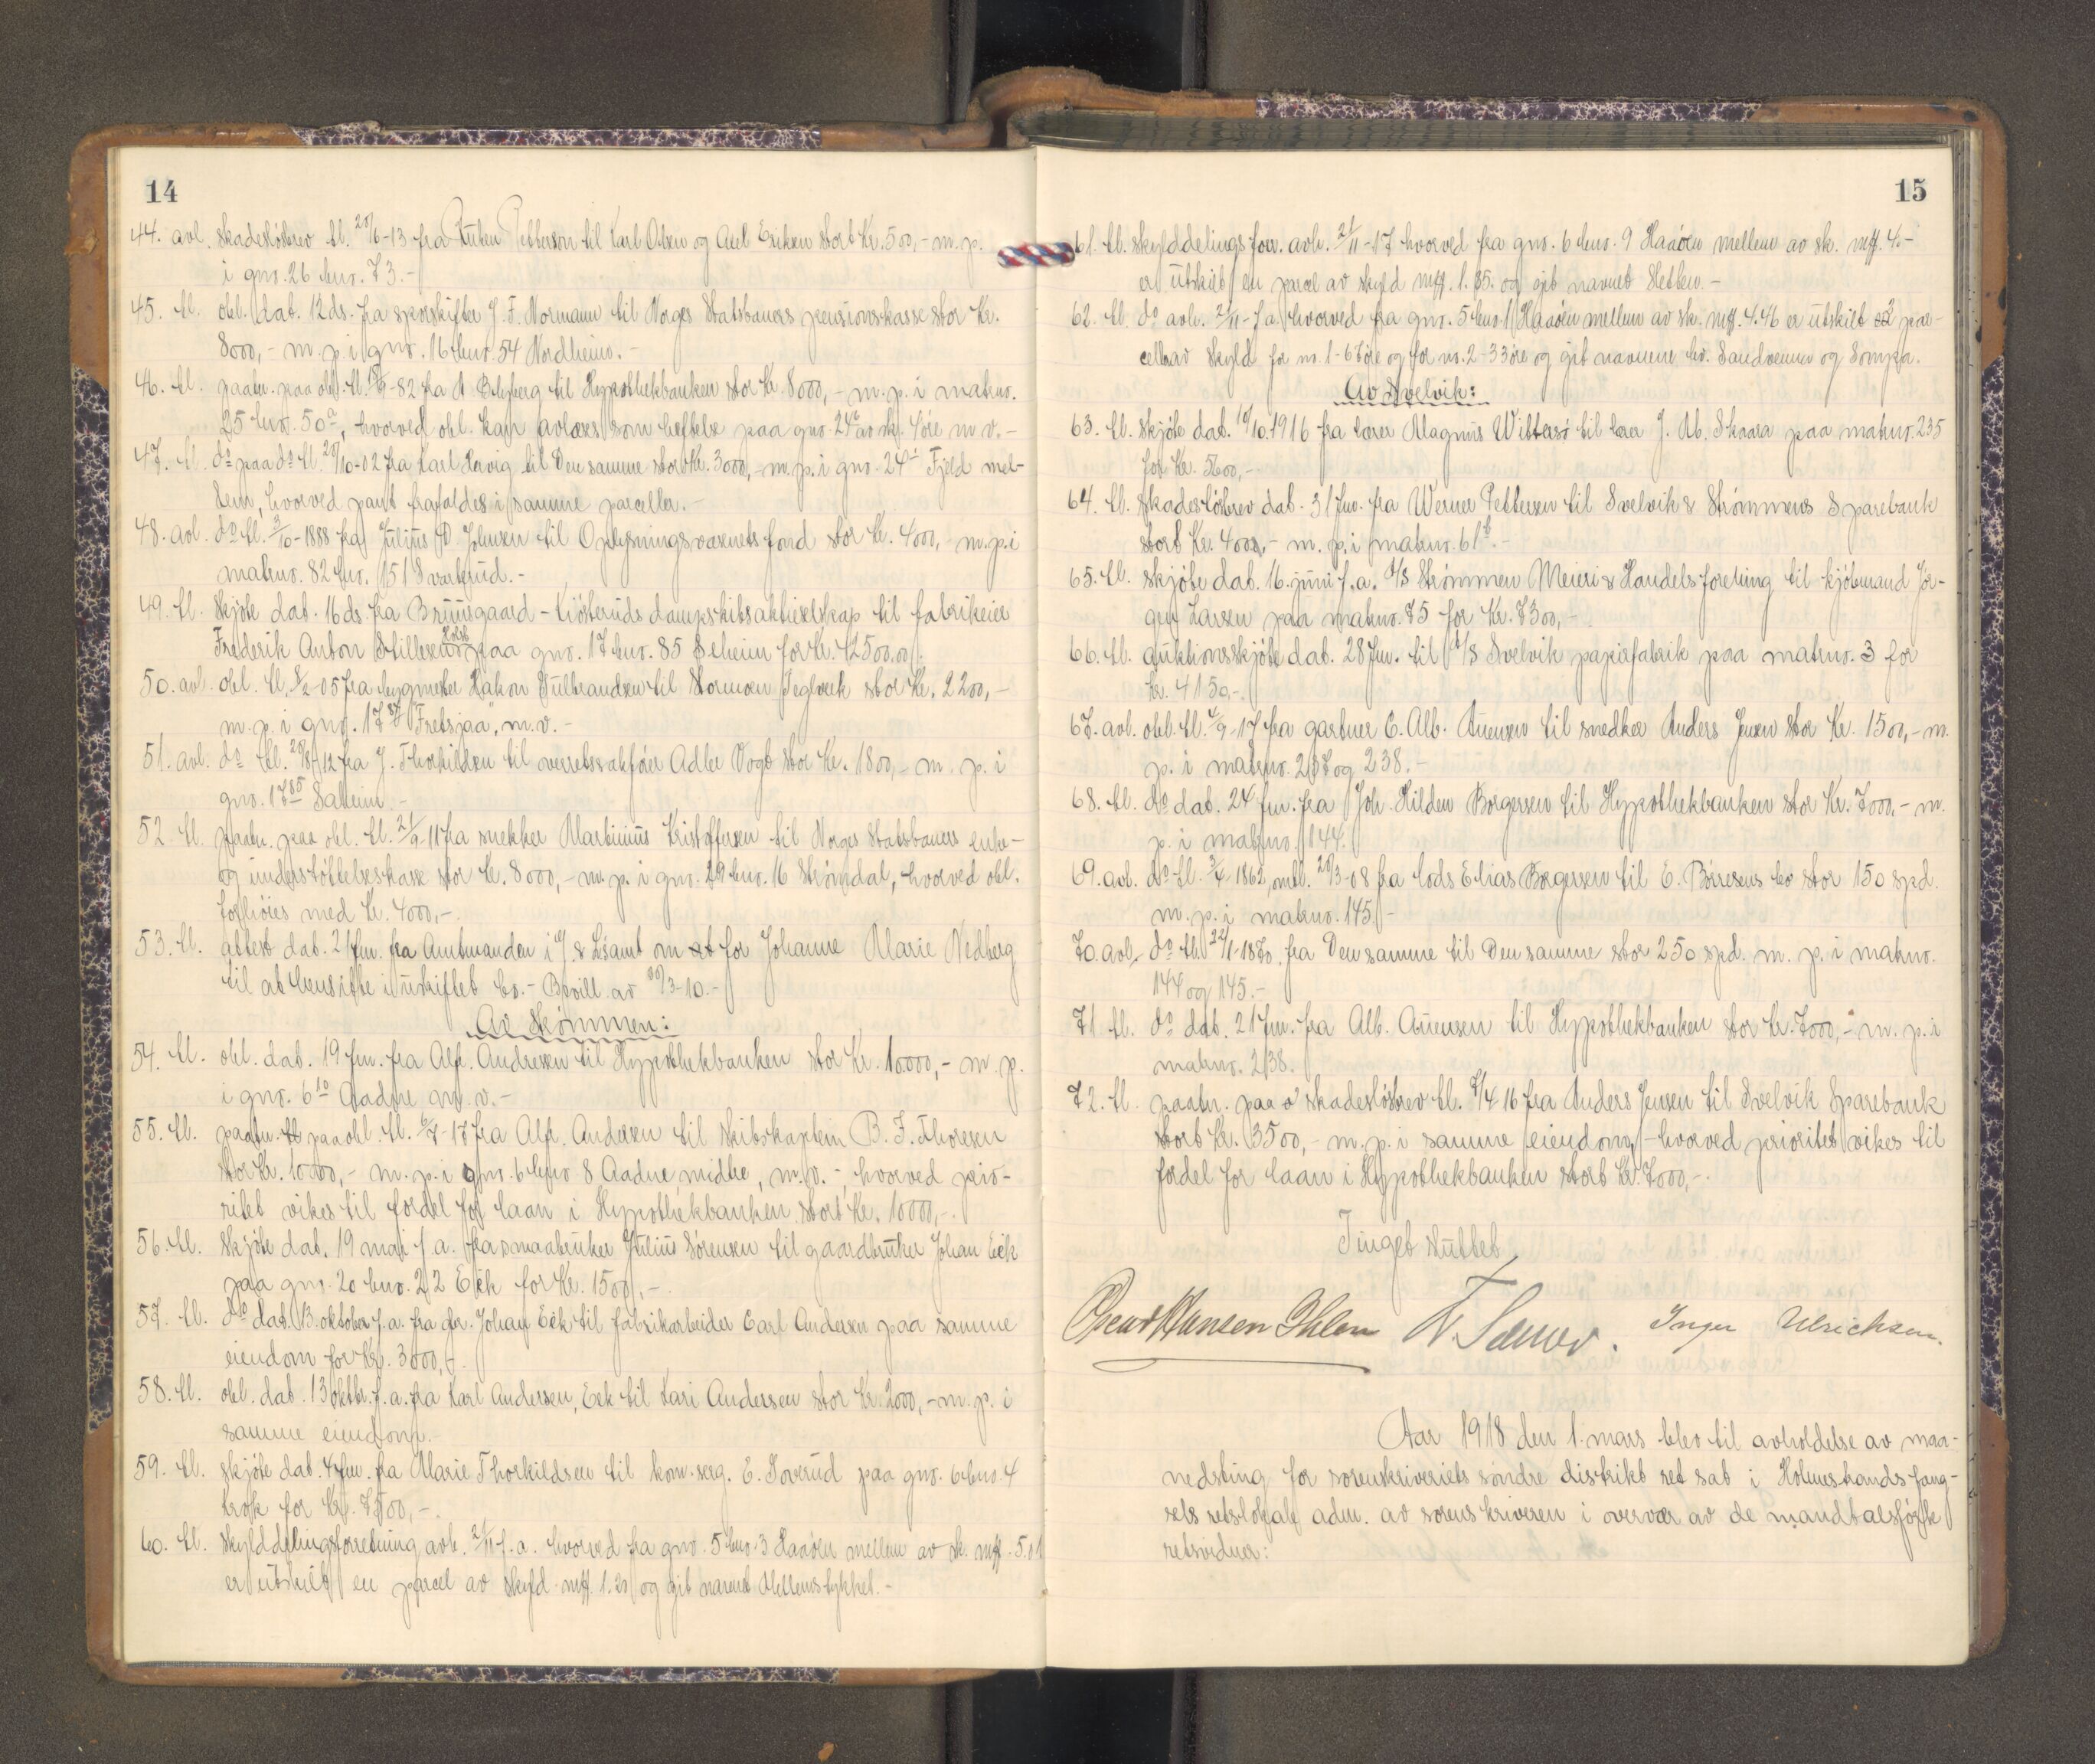 14
44. avl. skadesløsbrev tl. 20/6-13 fra Petterson til Karl Olsen og Axel Eriksen stort Kr. 500,- m. p.
i gno. 26 bno. 73.-
45. tl. obl. dat. 12 ds. fra sporskifter J. F. Normann til Norges Statsbaners pensionskasse stor Kr.
8000,- m. p. i gno. 16 bno. 54 Nordheim.-
46. tl. paatn. paa obl. tl. -82 fra til Hypothekbanken stor Kr. 8000,- m. p. i matno.
25 bno. 50a, hvorved obl. kan avlæses som heftelse paa gno. 24 av sk. 4 øre m. v.-
47. tl. do paa do tl. 20/10-02 fra Karl Hervig til Den samme stor Kr. 3000,- m. p. i gno. 24 Fjeld mel-
lem, hvorved pant frafaldes i samme parceller.-
48. avl. do tl. 3/10-1888 fra Julius D. Johnsen til Oplysningsvæsenets fond stor Kr. 4000,- m. p. i
matno. 82 bno. 151 Svarterud.-
49. tl. skjøte dat. 16 ds. fra Bruusgaard-Kiøsteruds dampskibsaktieselskap til fabrikeier
Frederik Anton Holst Stillesen paa gno. 17 bno. 85 Solheim for Kr. 42500,00.
50. avl. obl. tl. -05 fra bygmester Håkon Gulbrandsen til Stormoen Teglverk stor Kr. 2200,-
m. p. i gno. 17 87 "Fretsjaa", m. v.-
51. avl. do tl. -12 fra J. Thorkildsen til overretssakfører Adler Vogt stor Kr. 1800,- m. p. i
gno. 17 85 Solheim.-
52. tl. paatn. paa obl. tl. 21/9-11 fra snekker Martinius Kristoffersen til Norges Statsbaners enke-
og understøttelseskasse stor Kr. 8000,- m. p. i gno. 29 bno. 16 Strømdal, hvorved obl.
forhøies med Kr. 4000,-.
53. tl. attest dat. 21 fm. fra Amtmanden i J. & L. amt om at for Johanne Marie Nedberg
til at hensitte i uskiftet bo.- Bevill. av 30/3-10.-
Av Strømmen:
54. tl. obl. dat. 19 fm. fra Alf. Andresen til Hypothekbanken stor Kr. 10000,- m. p.
i gno. 6 10 Aadne m. v.-
55. tl. paatn. tl paa obl. tl. -17 fra Alf. Andersen til skibskaptein B. F. Thoresen
stor Kr. 10000,- m. p. i gno. 6 bno 8 Aadne, midtre, m. v.-, hvorved prio-
ritet vikes til fordel for laan i Hypothekbanken stort Kr. 10000,-.
56. tl. skjøte dat. 19 mai f. a. fra smaabruker Julius Sørensen til gaardbruker Johan Eik
paa gno. 20 bno. 22 Eik for Kr. 1500,-
57. tl. do dat. 13. oktober f. a. fra gbr. Johan Eik til fabrikarbeider Carl Andersen paa samme
eiendom for Kr. 3000,-.
58. tl. obl. dat. 13 oktbr. f. a. fra Karl Andersen, Eek til Kari Andersen stor Kr. 2000,- m. p. i
samme eiendom.-
59. tl. skjøte dat. 4 fm. fra Marie Thorkildsen til kom. serg. E. Soverud paa gno. 6 bno. 4
Krok for Kr. 7500,-.
60. tl. skylddelingsforretning avh. 21/11 f. a. hvorved fra gno. 5 bno. 3 Haaøen mellem av sk. mrk. 5.01
er utskilt en parcel av skyld mrk. 1.20 og git navnet Mellemstykket.-
15
61. tl. skylddelingsforr. avh. 21/11-17 hvorved fra gno. 6 bno. 9 Haaøen mellem av sk. mrk. 4.-
er utskilt en parcel av skyld mrk. 1.85. og git navnet Sletten.-
62. tl. do avh. 21/11 f. a. hvorved fra gno. 5 bno. 1 Haaøen mellem av sk. mrk. 4.46 er utskilt 2 par-
celler av skyld for nr. 1-67 øre og for nr. 2-33 øre og git navnene hv. Sandvennen og Sompa.
Av Svelvik:
63. tl. skjøte dat. 10/10.1916 fra lærer Magnus Witters til lærer J. M. Skaara paa matno. 235
for Kr. 5600,-
64. tl. skadesløsbrev dat. 31 fm. fra Werner Pettersen til Svelvik & Strømmens Sparebank
stort Kr. 4000,- m. p. i matno. 61 b.-
65. tl. skjøte dat. 16. juni f. a. A/S Strømmen Meieri & Handelsforening til kjøbmand Jør-
gen Larsen paa matno. 75 for Kr. 7300,-
66. tl. auktionsskjøte dat. 28 fm. til A/S Svelvik papirfabrik paa matno. 3 for
Kr. 4150.-.
67. avl. obl. tl. -17 fra gartner C. Alb. Auensen til snedker Anders Jensen stor Kr. 1500,- m.
p. i matno. 237 og 238.-
68. tl. do dat. 24 fm. fra Joh. Hilden Borgersen til Hypothekbanken stor Kr. 7000,- m.
p. i matno. 144.
69. avl. do tl. 1862, mtl. 20/3-08 fra lods Elias Borgersen til E. Børresens bo stor 150 spd.
m. p. i matno. 145.-
70. avl. do tl. 22/1-1870, fra Den samme til Den samme stor 250 spd. m. p. i matno.
144 og 145.-
71. tl. do dat. 21 fm. fra Alb. Auensen til Hypothekbanken stor Kr. 7000,- m. p. i
matno. 238.
72. tl. paatn. paa skadesløsbrev tl. 7/4 16 fra Anders Jensen til Svelvik Sparebank
stort Kr. 3500,- m. p. i samme eiendom,- hvorved prioritet vikes til
fordel for laan i Hypothekbanken stort Kr. 7000,-.
Tinget sluttet.
Oscar Hansen Ihlen Inger Ulrichsen.
Aar 1918 den 1. mars blev til avholdelse av maa-
nedsting for sorenskriveriets søndre distrikt ret sat i Holmestrands fæng-
sels retslokale adm. av sorenskriveren i overvær av de mandtalsførte
retsvidner: